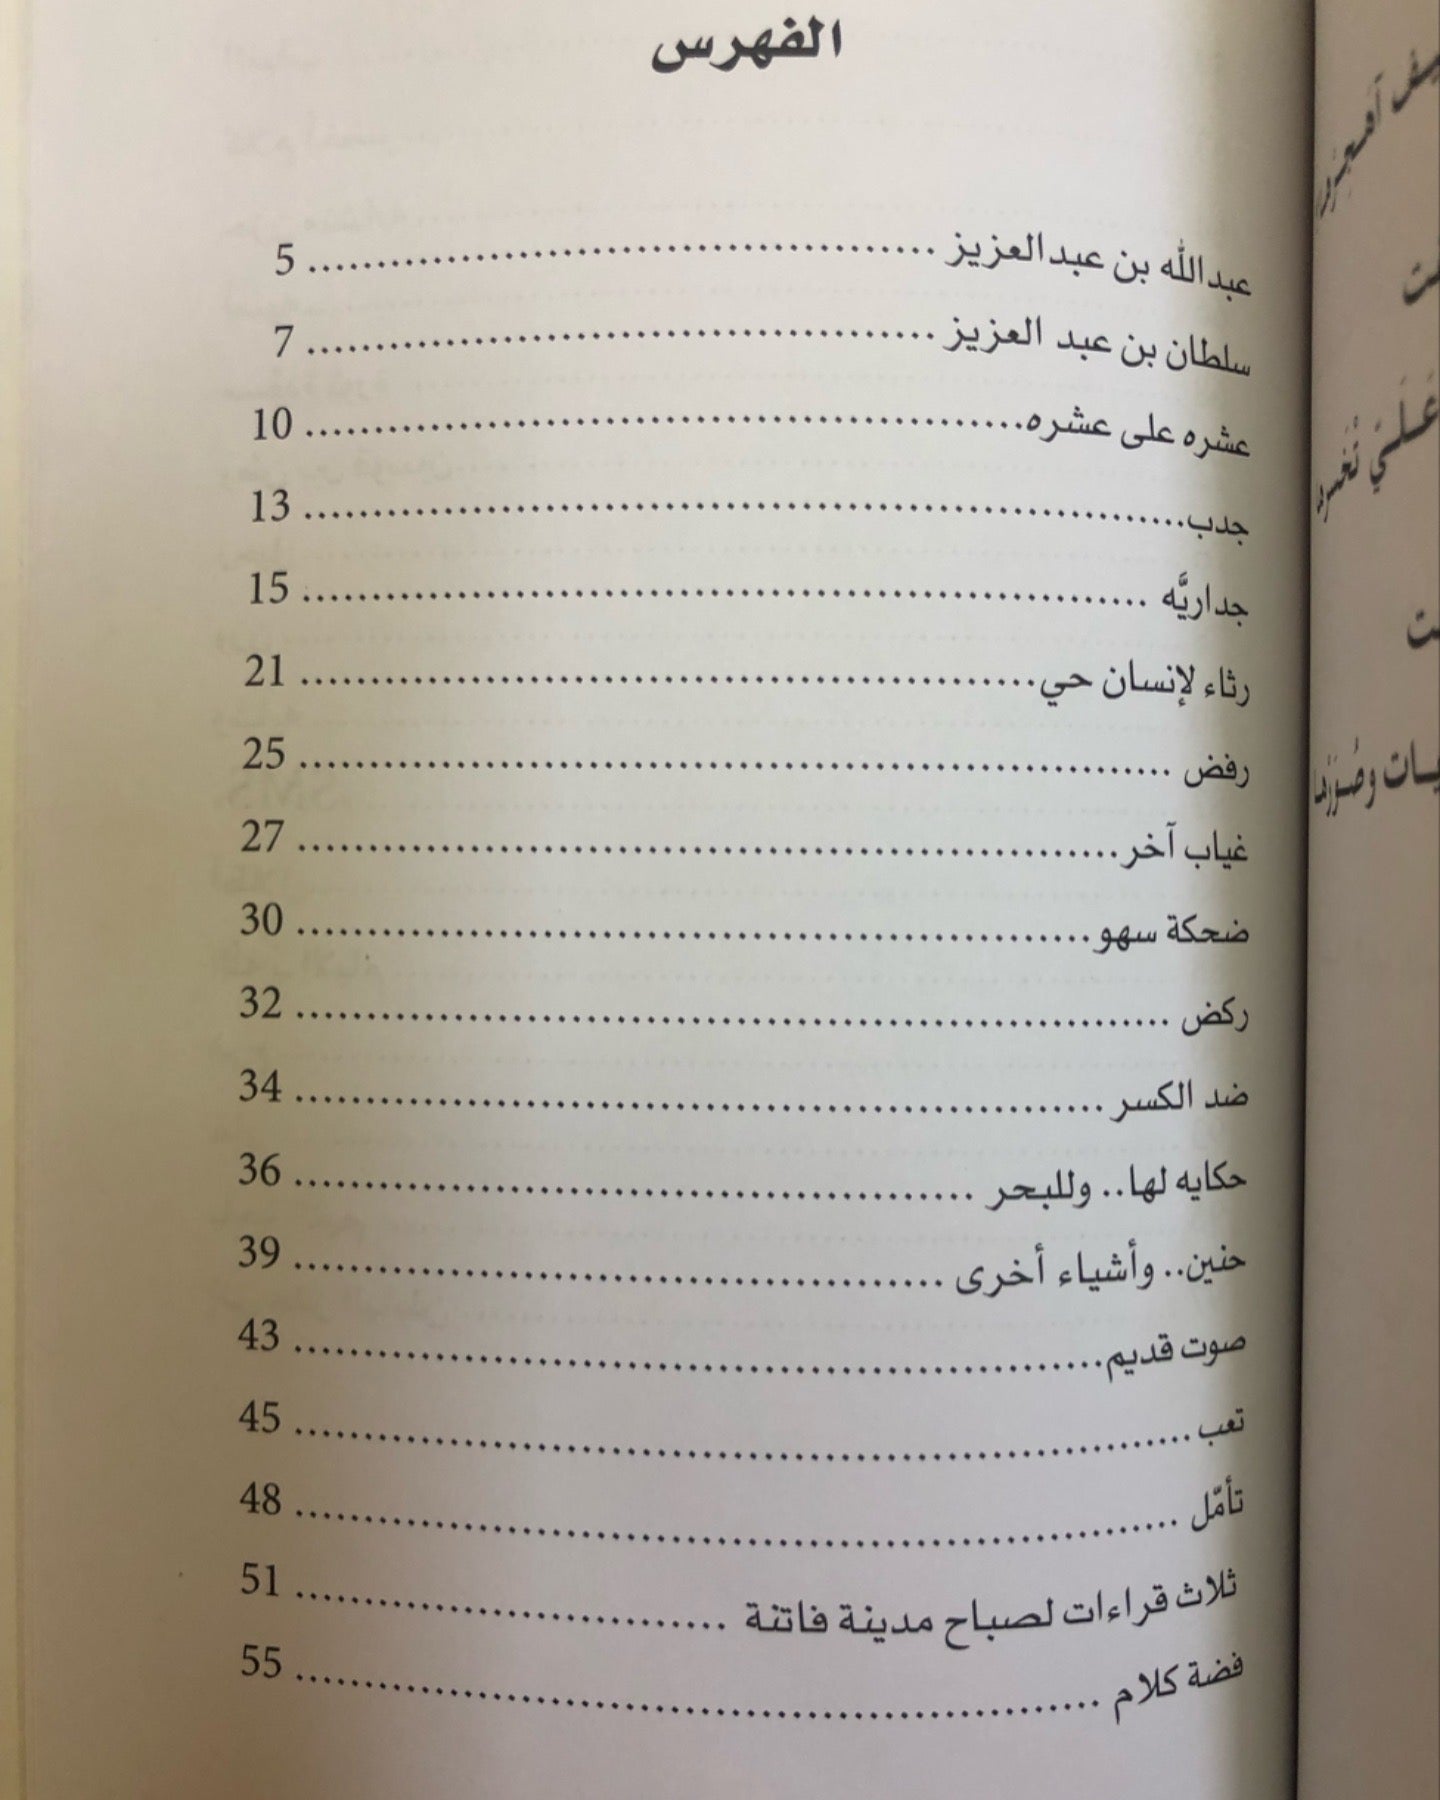 الفهرس
عبدالله بن عبدالعزيز ........................................ 5
سلطان بن عبد العزيز ........................................ 7
عشره على عشره........................................ 10
جدب........................................ 13
جداريَّه ........................................ 15
رثاء لإنسان حي........................................ 21
رفض ........................................ 25
غياب آخر........................................ 27
ضحكة سهو........................................ 30
ركض ........................................ 32
ضد الكسر ........................................ 34
حكايه لها.. وللبحر ........................................ 36
حنين.. وأشياء أخرى ........................................ 39
صوت قديم........................................ 43
تعب........................................ 45
تأمّل ........................................ 48
ثلاث قراءات لصباح مدينة فاتنة ........................................ 51
فضة كلام ........................................ 55